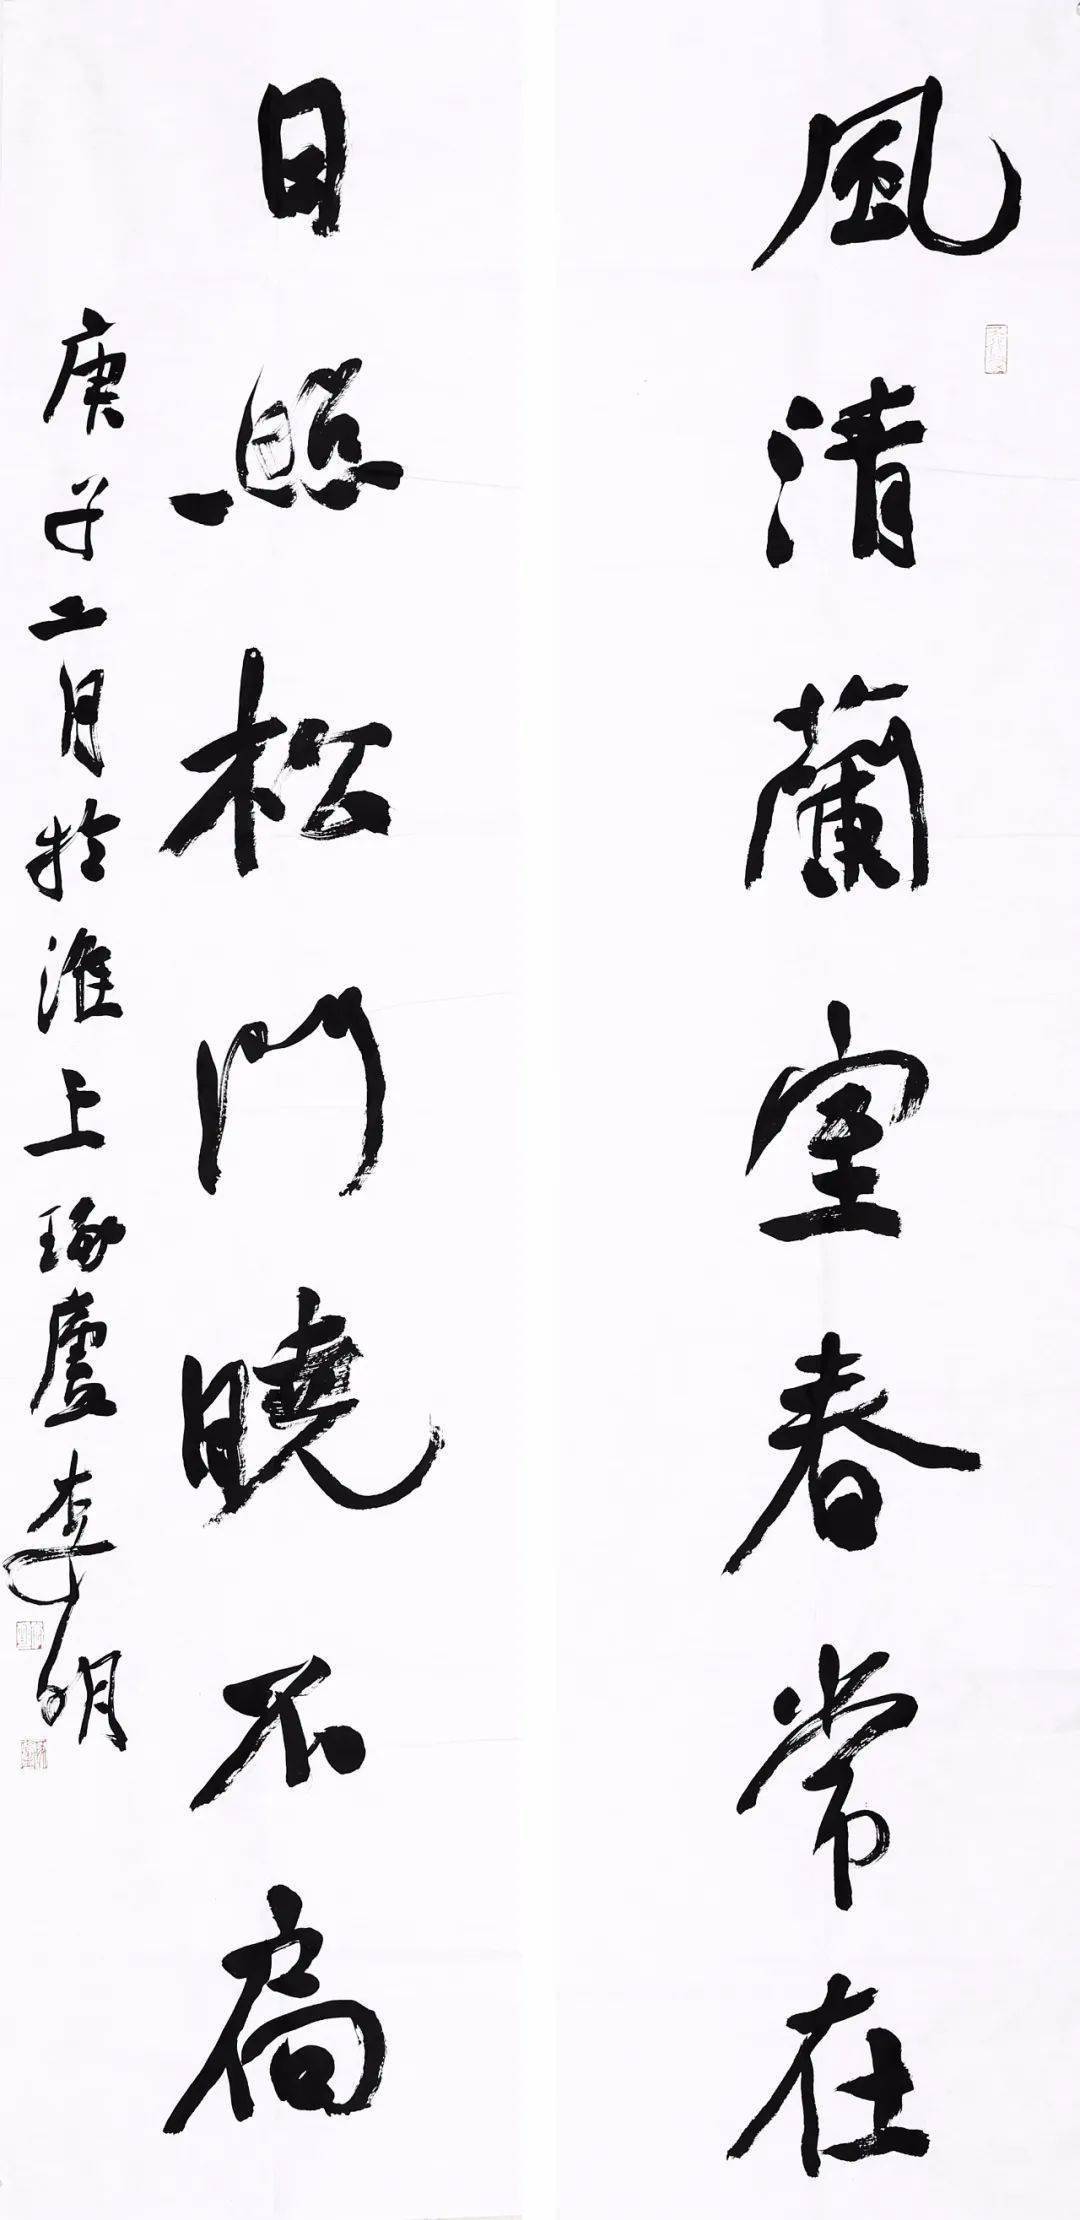 風清蘭室春常在
日照松門曉不扃
庚子二月於淮上琢廬李明